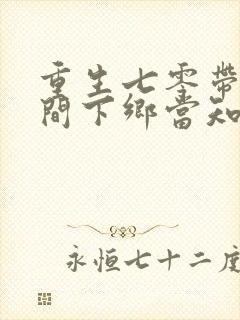 重生七零帶
間下鄉當知
永恒七十二度